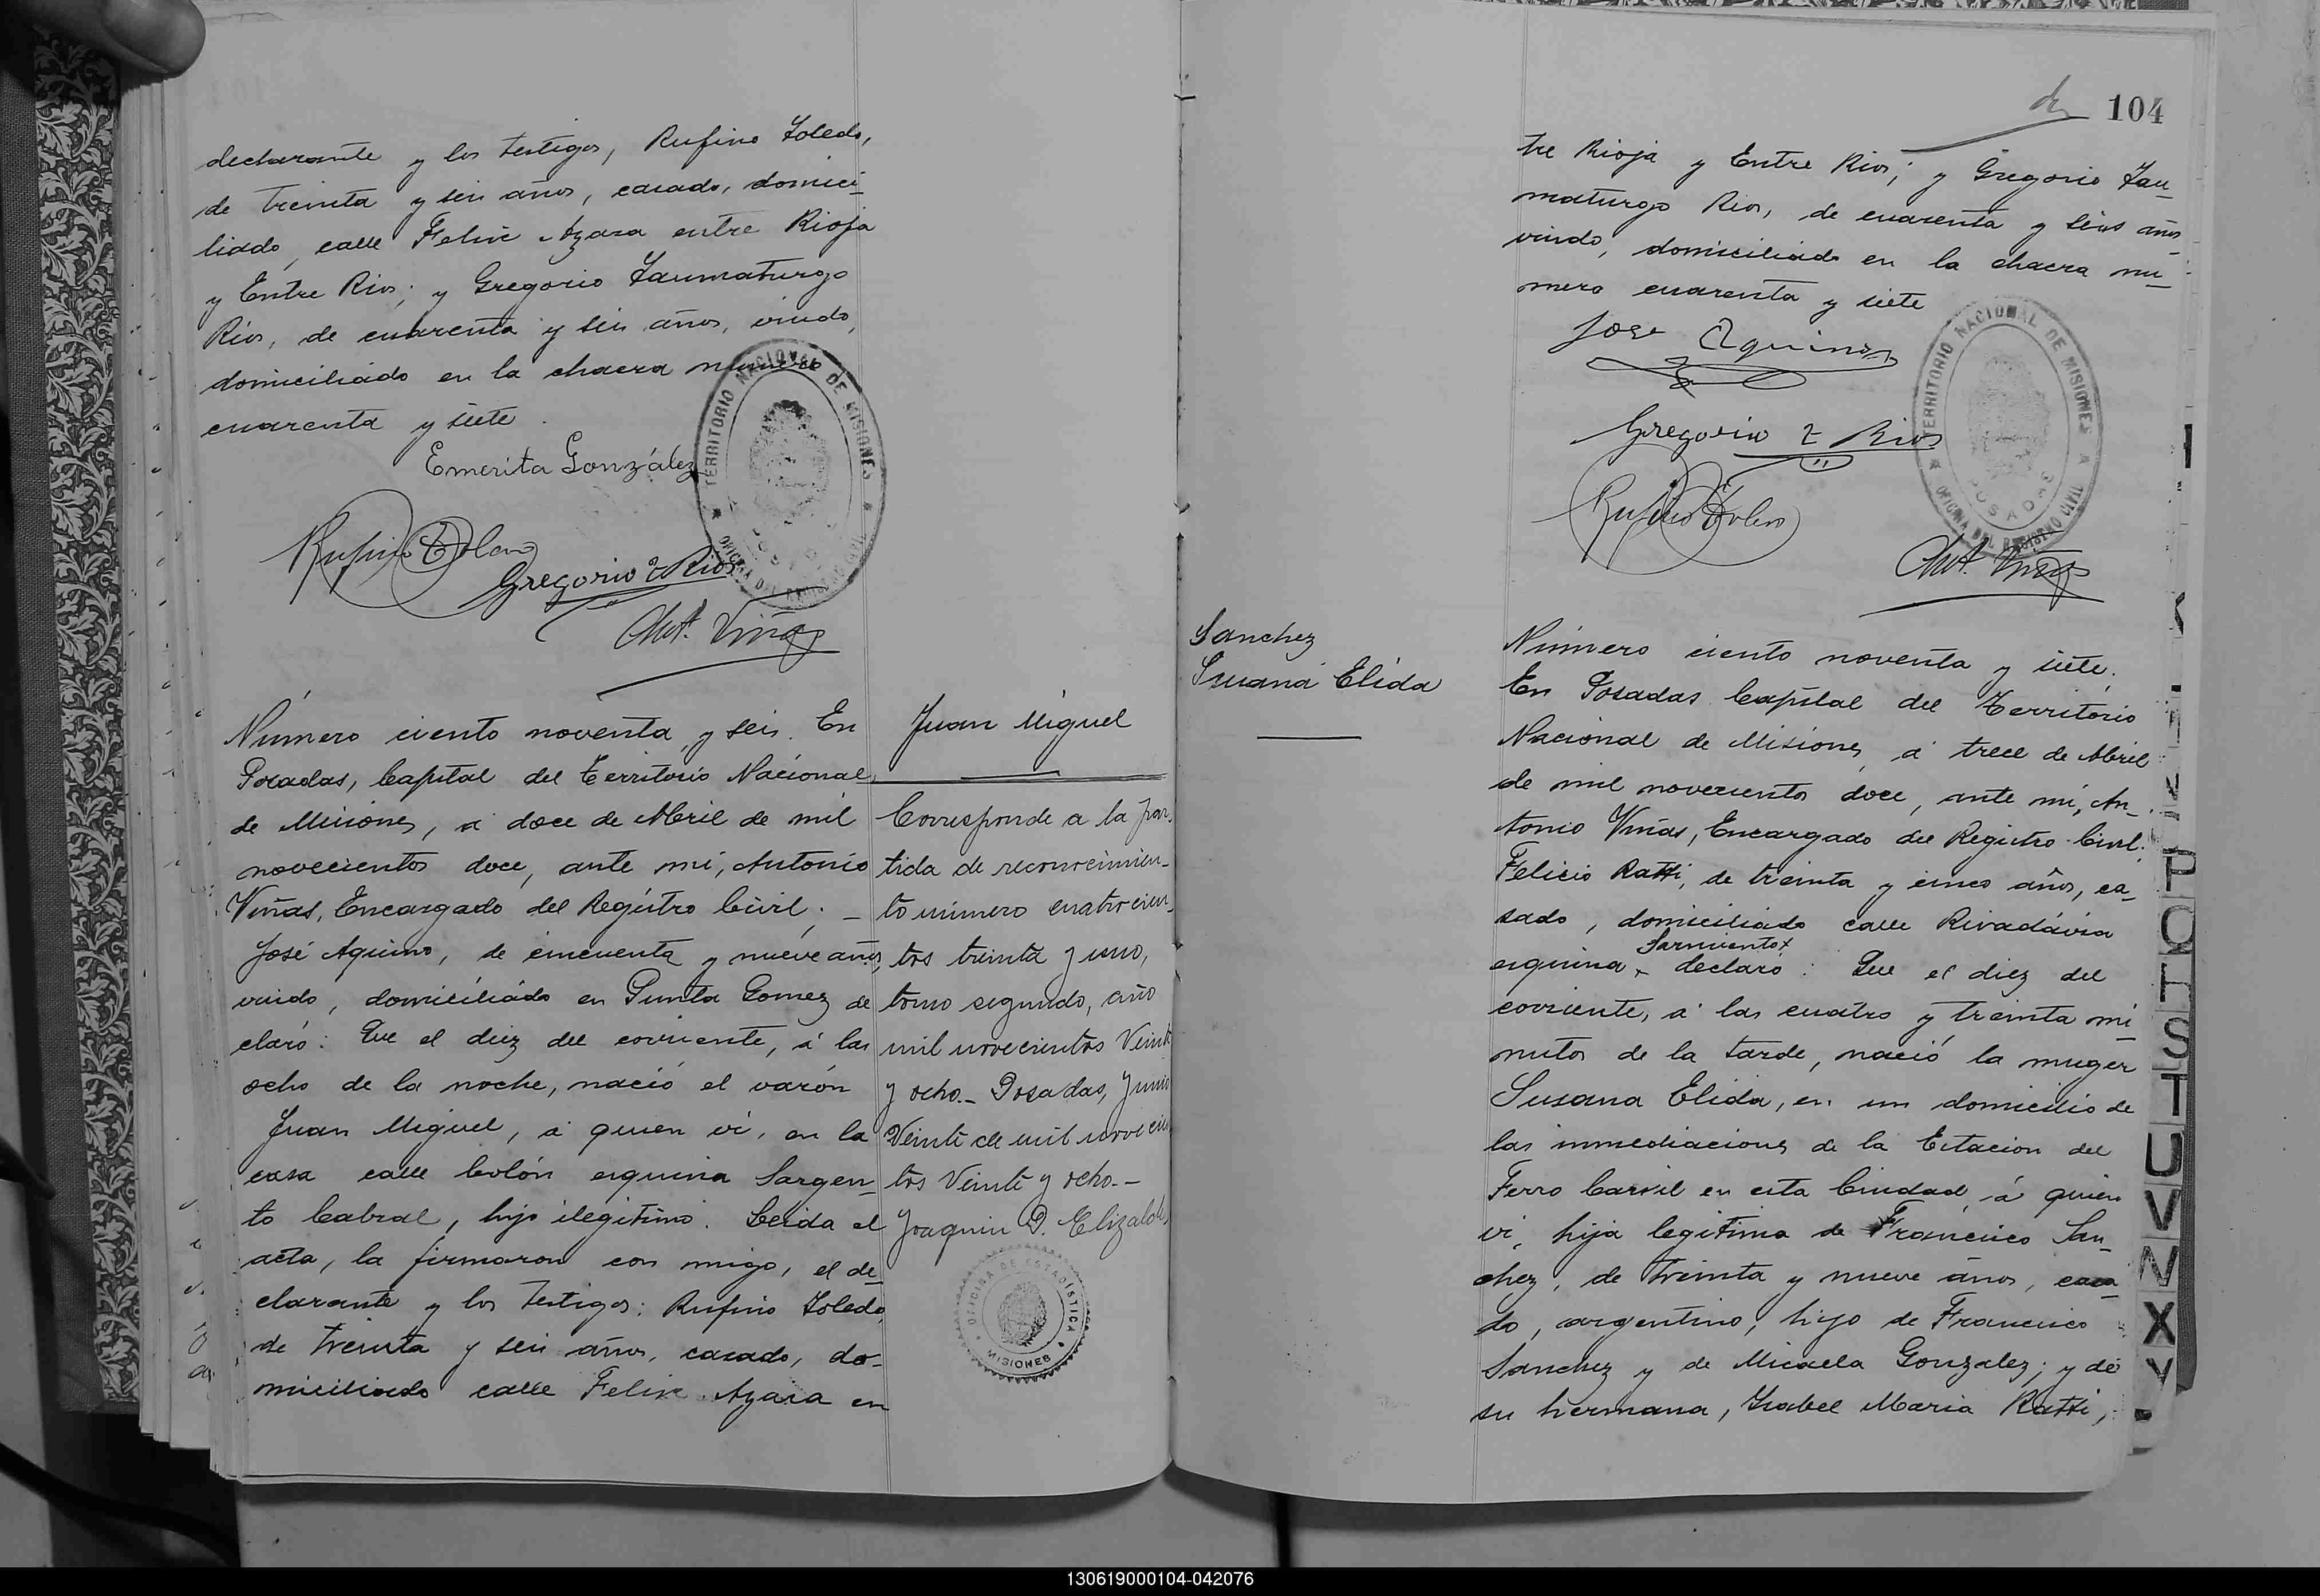 declarante y los testigos, Rufino Toledo,
de treinta y seis años, casado, domici-
liado, calle Felix Azara entre Rioja
y Entre Rios; y Gregorio Taumaturgo
Rios, de cuarenta y seis años, viudo,
domiciliado en la chacra numero
cuarenta y siete.
Emerita González
Rufino Toledo
Gregorio T Rios
Ant. Viñas
TERRITORIO NACIONAL DE MISIONES
OFICINA DEL REGISTRO CIVIL
POSADAS
Número ciento noventa y seis. En
Posadas, Capital del Territorio Nacional
de Misiones, á doce de Abril de mil
novecientos doce, ante mí, Antonio
Viñas, Encargado del Registro Civil; -
José Aquino, de cincuenta y nueve años,
viudo, domiciliado en Punta Gomez de
claró: Que el diez del corriente, á las
ocho de la noche, nació el varón
Juan Miguel, á quien ví, en la
casa calle Colón esquina Sargen-
to Cabral, hijo ilegitimo. Leida el
acta, la firmaron con migo, el de-
clarante y los testigos: Rufino Toledo,
de treinta y seis años, casado, do-
miciliado calle Felix Azara en
Juan Miguel
Corresponde a la par-
tida de reconocimien-
to número cuatrocien-
tos treinta y uno,
tomo segundo, año
mil novecientos Veinte
y ocho.- Posadas, Junio
Veinte de mil novecien
tos Veinte y ocho.-
Joaquin D. Elizalde
OFICINA DE ESTADISTICA
MISIONES
104
tre Rioja y Entre Rios; y Gregorio Tau-
maturgo Rios, de cuarenta y seis años
viudo, domiciliado en la chacra nu-
mero cuarenta y siete
Jose Aquino
Gregorio T Rios
Rufino Toledo
Ant. Viñas
TERRITORIO NACIONAL DE MISIONES
OFICINA DEL REGISTRO CIVIL
POSADAS
Sanchez
Susana Elida
Número ciento noventa y siete.
En Posadas Capital del Territorio
Nacional de Misiones, á trece de Abril
de mil novecientos doce, ante mí, An-
tonio Viñas, Encargado del Registro Civil;
Felicio Ratti, de treinta y cinco años, ca-
sado, domiciliado calle Rivadávia
Sarmiento x
esquina x declaró: Que el diez del
corriente, á las cuatro y treinta mi
nutos de la tarde, nació la muger
Susana Elida, en un domicilio de
las inmediaciones de la Estacion del
Ferro Carril en esta Ciudad, á quien
ví, hija legitima de Francisco San-
chez, de treinta y nueve años, casa-
do, argentino, hijo de Francisco
Sanchez y de Micaela Gonzalez; y de
su hermana, Ysabel Maria Ratti,
P
Q
H
S
T
U
V
N
X
Y
130619000104-042076